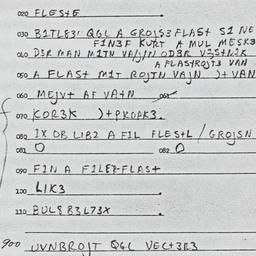 020 FLES+E
030 BITLE3! QGL A GROJS3 FLAS+ SI NE
FIN3F KURT A MUL MESK3
040 D3R MAN MITN VAJJN OD3R V3S+NIK
A FLASYROJT3 VAN
050 A FLAS+ MIT ROJTN VAJN )+VAN
060 MEJV+ AF VA+N 061
070 KOR3K )+PROPK3.
080 IX OB LIB2 A FIL FLES+L / GROJSN
081 O 082 O
090 FIN A FILER-FLAS+
100 LIK3
110 BUL8 83L73X
900 UVNBROJT QGL VEC+3R3